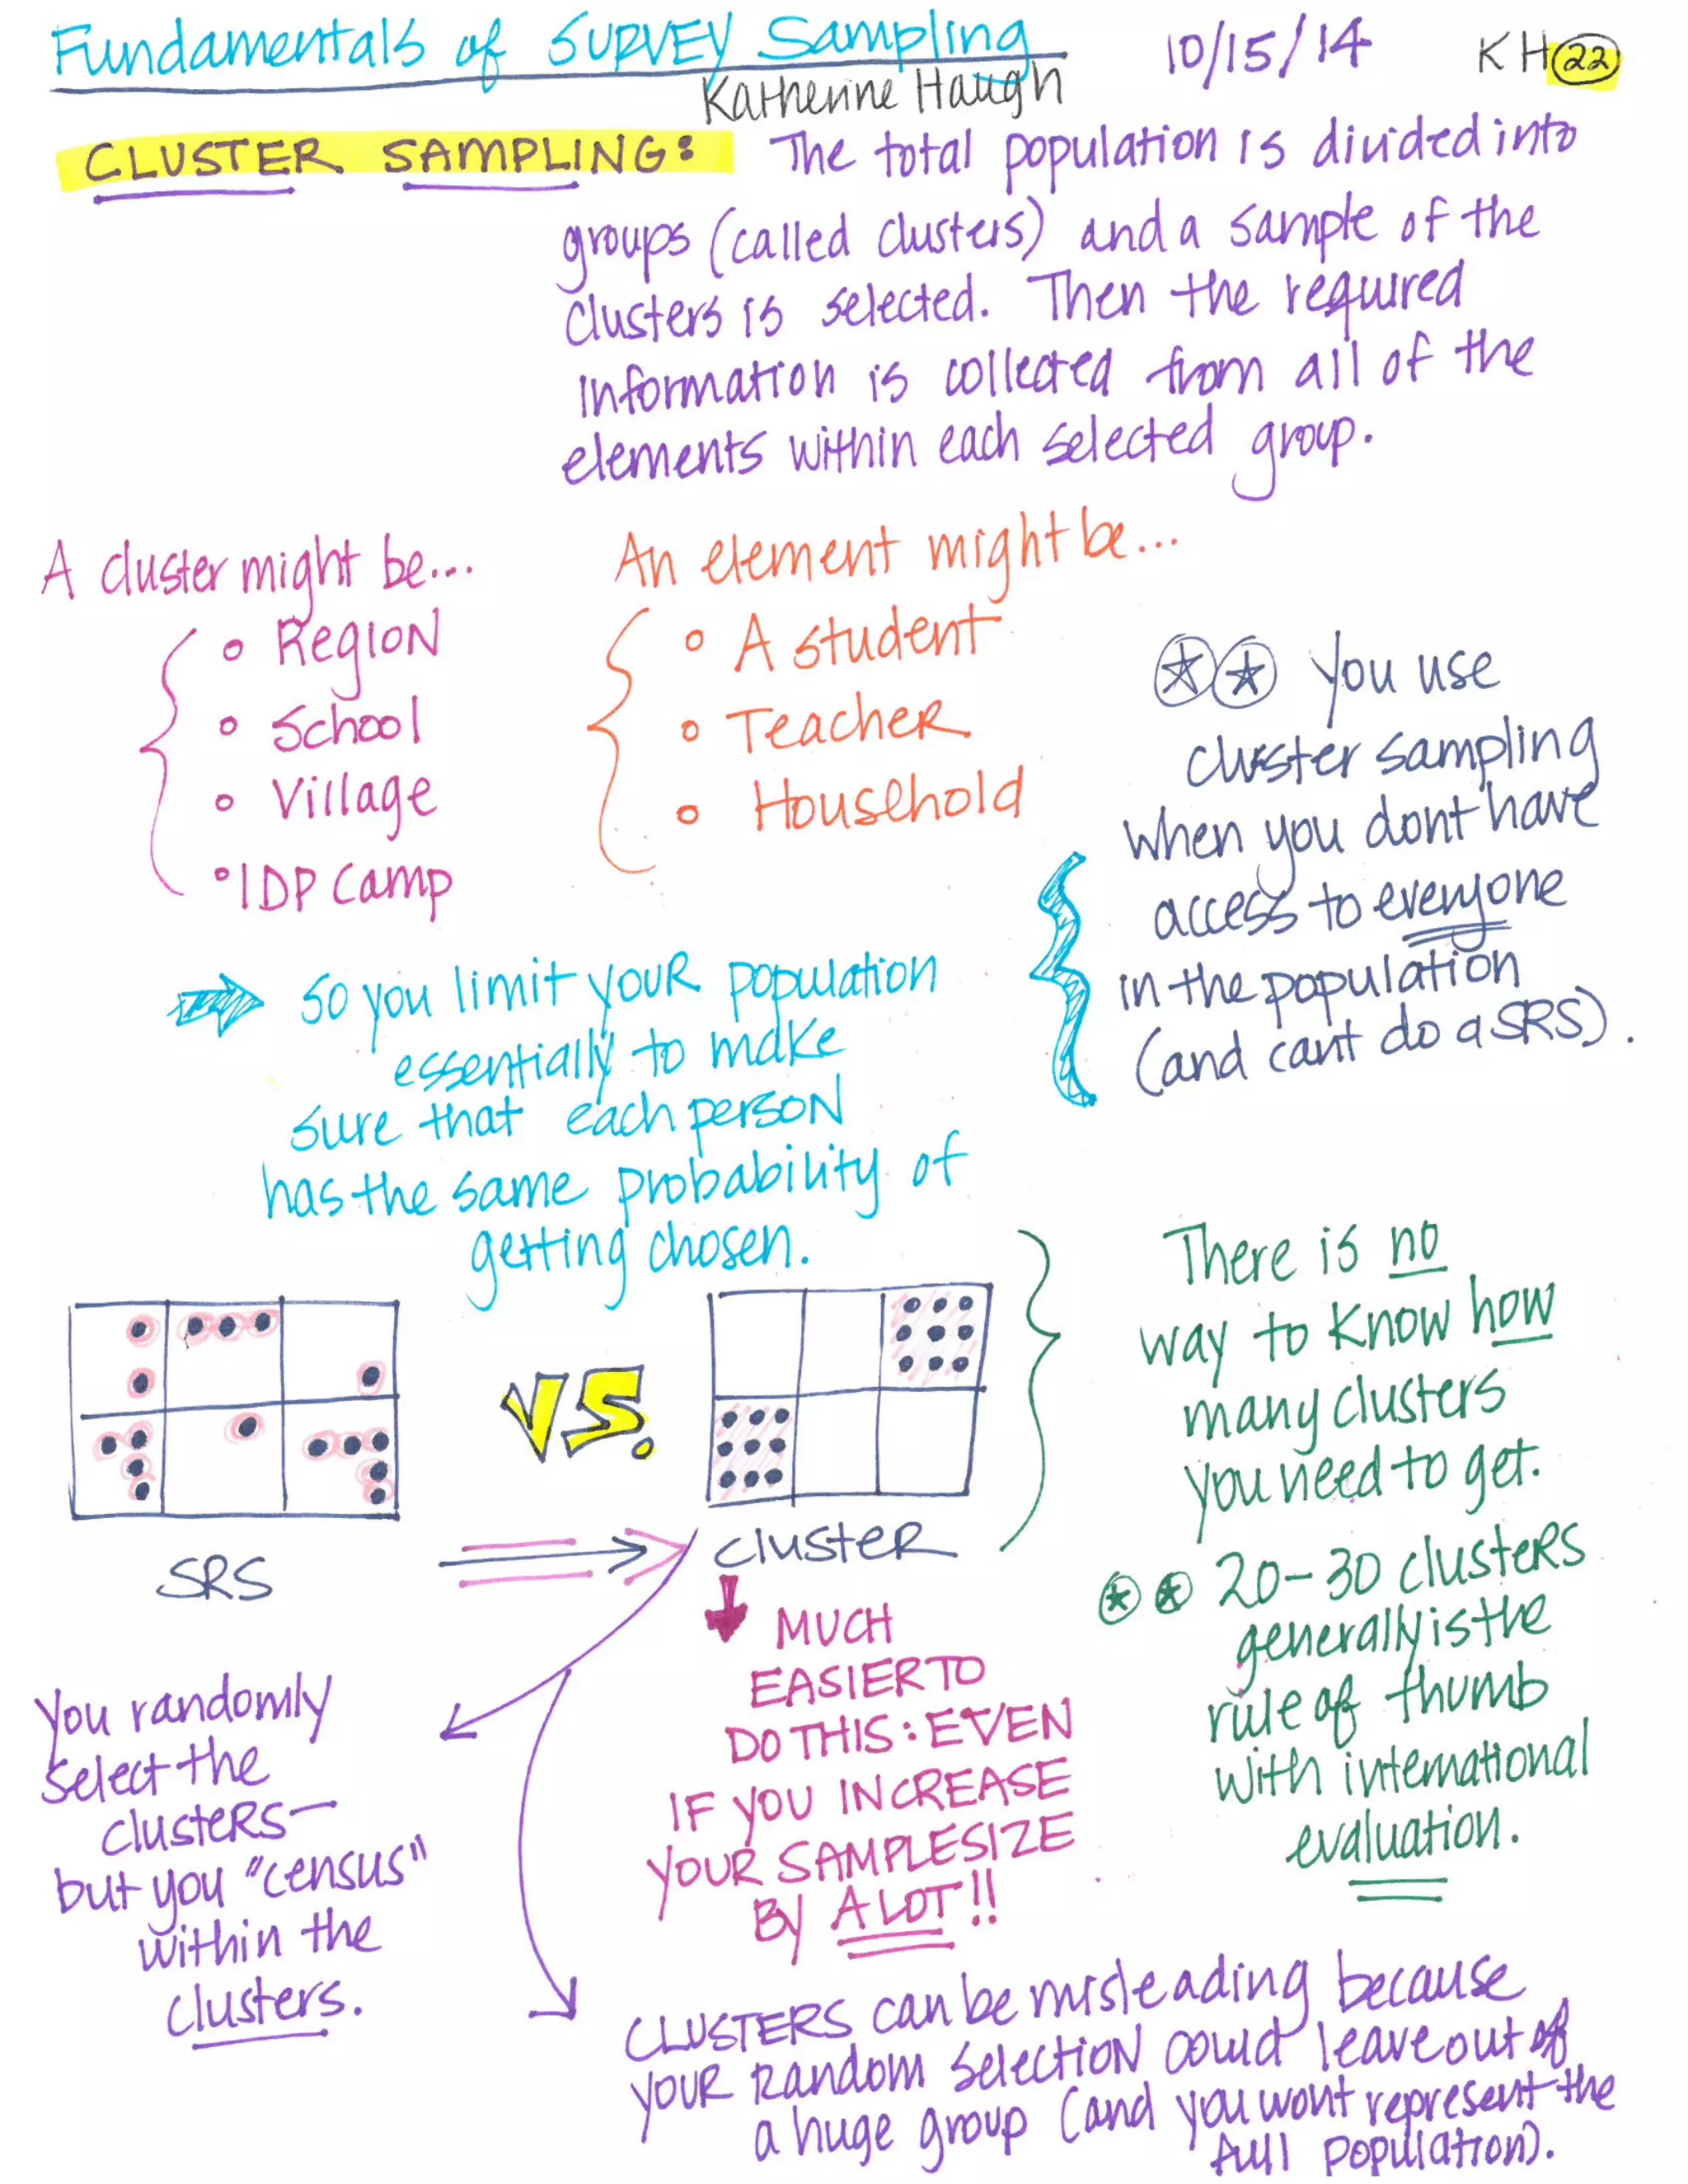 Fundamentals of SURVEY Sampling
10/15/14
KH 22
Katherine Haugh
CLUSTER SAMPLING: The total population is divided into
groups (called clusters) and a sample of the
clusters is selected. Then the required
information is collected from all of the
elements within each selected group.
A cluster might be...
• Region
• School
• Village
• IDP Camp
An element might be...
• A student
• Teacher
• Household
You use
cluster sampling
when you dont have
access to everyone
in the population
(and cant do a SRS).
So you limit your population
essentially to make
sure that each person
has the same probability of
getting chosen.
SRS
VS.
Cluster
There is no
way to know how
many clusters
you need to get.
20-30 clusters
generally is the
rule of thumb
with international
evaluation.
MUCH
EASIER TO
DO THIS: EVEN
IF YOU INCREASE
YOUR SAMPLE SIZE
BY A LOT!!
You randomly
select the
clusters—
but you "census"
within the
clusters.
CLUSTERS can be misleading because
your random selection could leave out of
a huge group (and you wont represent the
full population).